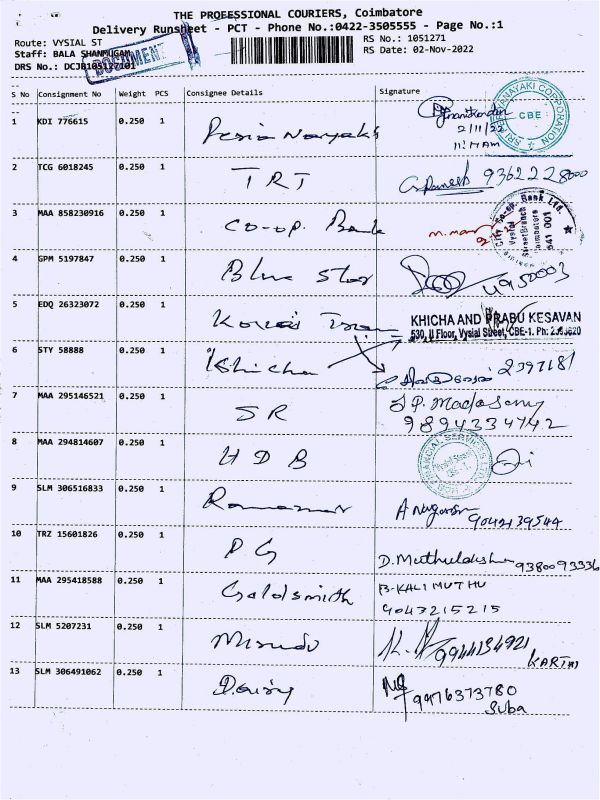 THE PROFESSIONAL COURIERS, Coimbatore
Delivery Runsheet - PCT - Phone No.:0422-3505555 - Page No.:1
Route: VYSIAL ST
RS No.: 1051271
Staff: BALA SHANMUGAM
RS Date: 02-Nov-2022
DRS No.: DCJB105127101
DOCUMENT
S No Consignment No Weight PCS Consignee Details Signature
1 KDI 776615 0.250 1
2/11/22
11:17AM
CBE
2 TCG 6018245 0.250 1 TRT 9362228000
3 MAA 858230916 0.250 1 CO-OP. Bank
City Co-op. Bank Ltd.
Vysial
Street Branch
Coimbatore
641 001
4 GPM 5197847 0.250 1 Blue Star 4950003
5 EDQ 26323072 0.250 1
KHICHA AND PRABU KESAVAN
530, II Floor, Vysial Street, CBE-1. Ph:
6 STY 58888 0.250 1 Khicha 2397181
7 MAA 295146521 0.250 1 SR J P. Madasamy
9894334742
8 MAA 294814607 0.250 1 HDB
9 SLM 306516833 0.250 1 A Nagarasn
9042139544
10 TRZ 15601826 0.250 1 PG D. Muthulakshm 9380093336
11 MAA 295418588 0.250 1 Goldsmith B-KALIMUTHU
9043215215
12 SLM 5207231 0.250 1 9944134921
KARTHI
13 SLM 306491062 0.250 1 Daisy 9976373780
Suba